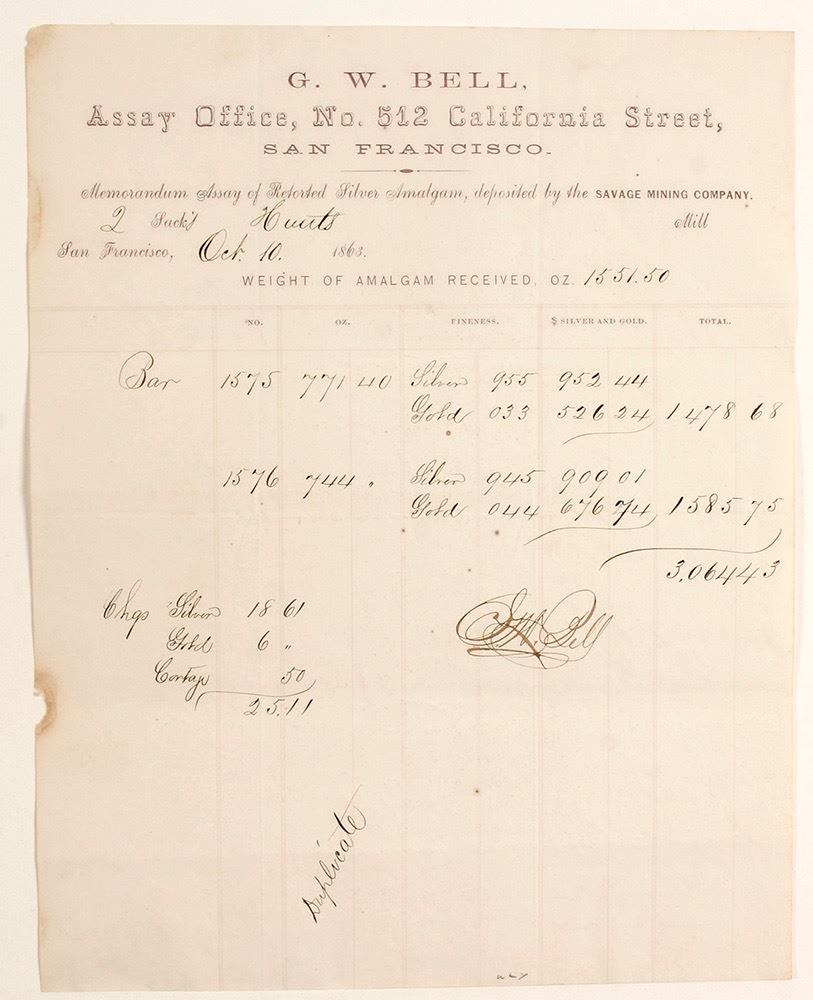 G. W. BELL,
Assay Office, No. 512 California Street,
SAN FRANCISCO.
Memorandum Assay of Retorted Silver Amalgam, deposited by the SAVAGE MINING COMPANY.
2 Sacks Hunts Mill
San Francisco, Oct. 10. 1863.
WEIGHT OF AMALGAM RECEIVED, OZ. 1551.50
NO. OZ. FINENESS. $ SILVER AND GOLD. TOTAL.
Bar 1575 771 40 Silver 955 952 44
Gold 033 526 24 1478 68
1576 744 " Silver 945 909 01
Gold 044 676 74 1585 75
3,064 43
Chgs Silver 18 61
Gold 6 "
Cartage 50
25.11
G.W. Bell
Duplicate